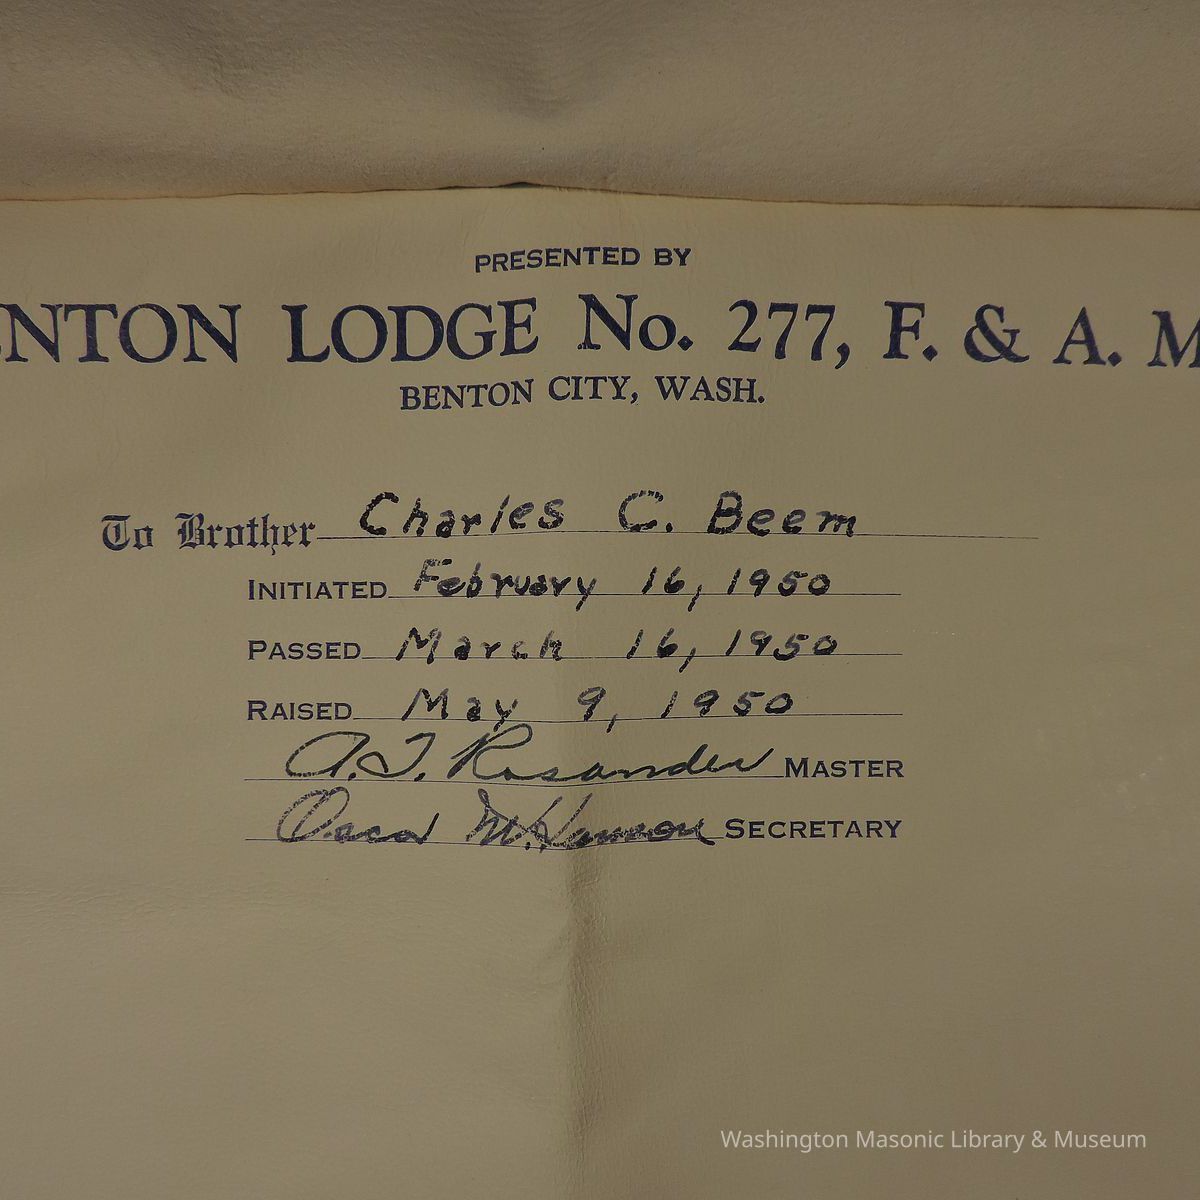 PRESENTED BY
ENTON LODGE No. 277, F. & A. M
BENTON CITY, WASH.
To Brother Charles C. Beem
INITIATED February 16, 1950
PASSED March 16, 1950
RAISED May 9, 1950
A. J. Rosander MASTER
Oscar SECRETARY
Washington Masonic Library & Museum